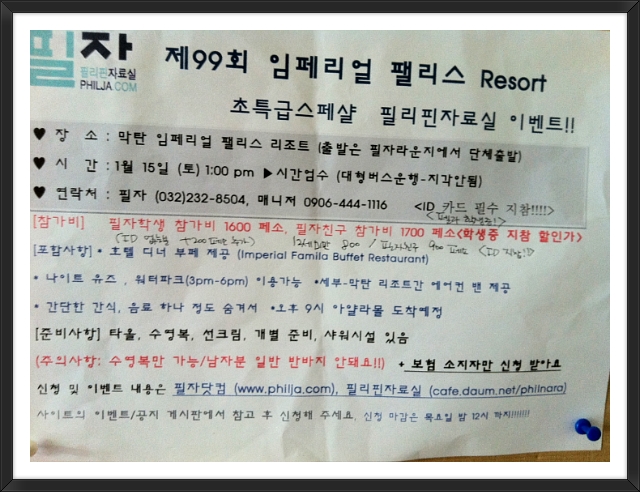 필자
필리핀자료실
PHILJA.COM
제99회 임페리얼 팰리스 Resort
초특급스페샬 필리핀자료실 이벤트!!
♥ 장 소 : 막탄 임페리얼 팰리스 리조트 (출발은 필자라운지에서 단체출발)
♥ 시 간 : 1월 15일 (토) 1:00 pm ▶시간엄수 (대형버스운행-지각안됨)
♥ 연락처 : 필자 (032)232-8504, 매니저 0906-444-1116 <ID 카드 필수 지참!!!!>
[참가비] 필자학생 참가비 1600 페소, 필자친구 참가비 1700 페소<학생증 지참 할인가>
(ID 800 / 900 <ID
[포함사항] • 호텔 디너 부페 제공 (Imperial Famila Buffet Restaurant)
• 나이트 유즈 , 워터파크(3pm-6pm) 이용가능 •세부-막탄 리조트간 에어컨 밴 제공
• 간단한 간식, 음료 하나 정도 숨겨서 •오후 9시 아얄라몰 도착예정
[준비사항] 타울, 수영복, 선크림, 개별 준비, 샤워시설 있음
(주의사항: 수영복만 가능/남자분 일반 반바지 안돼요!!) + 보험 소지자만 신청 받아요
신청 및 이벤트 내용은 필자닷컴 (www.philja.com), 필리핀자료실 (cafe.daum.net/philnara)
사이트의 이벤트/공지 게시판에서 참고 후 신청해 주세요. 신청 마감은 목요일 밤 12시 까지!!!!!!!